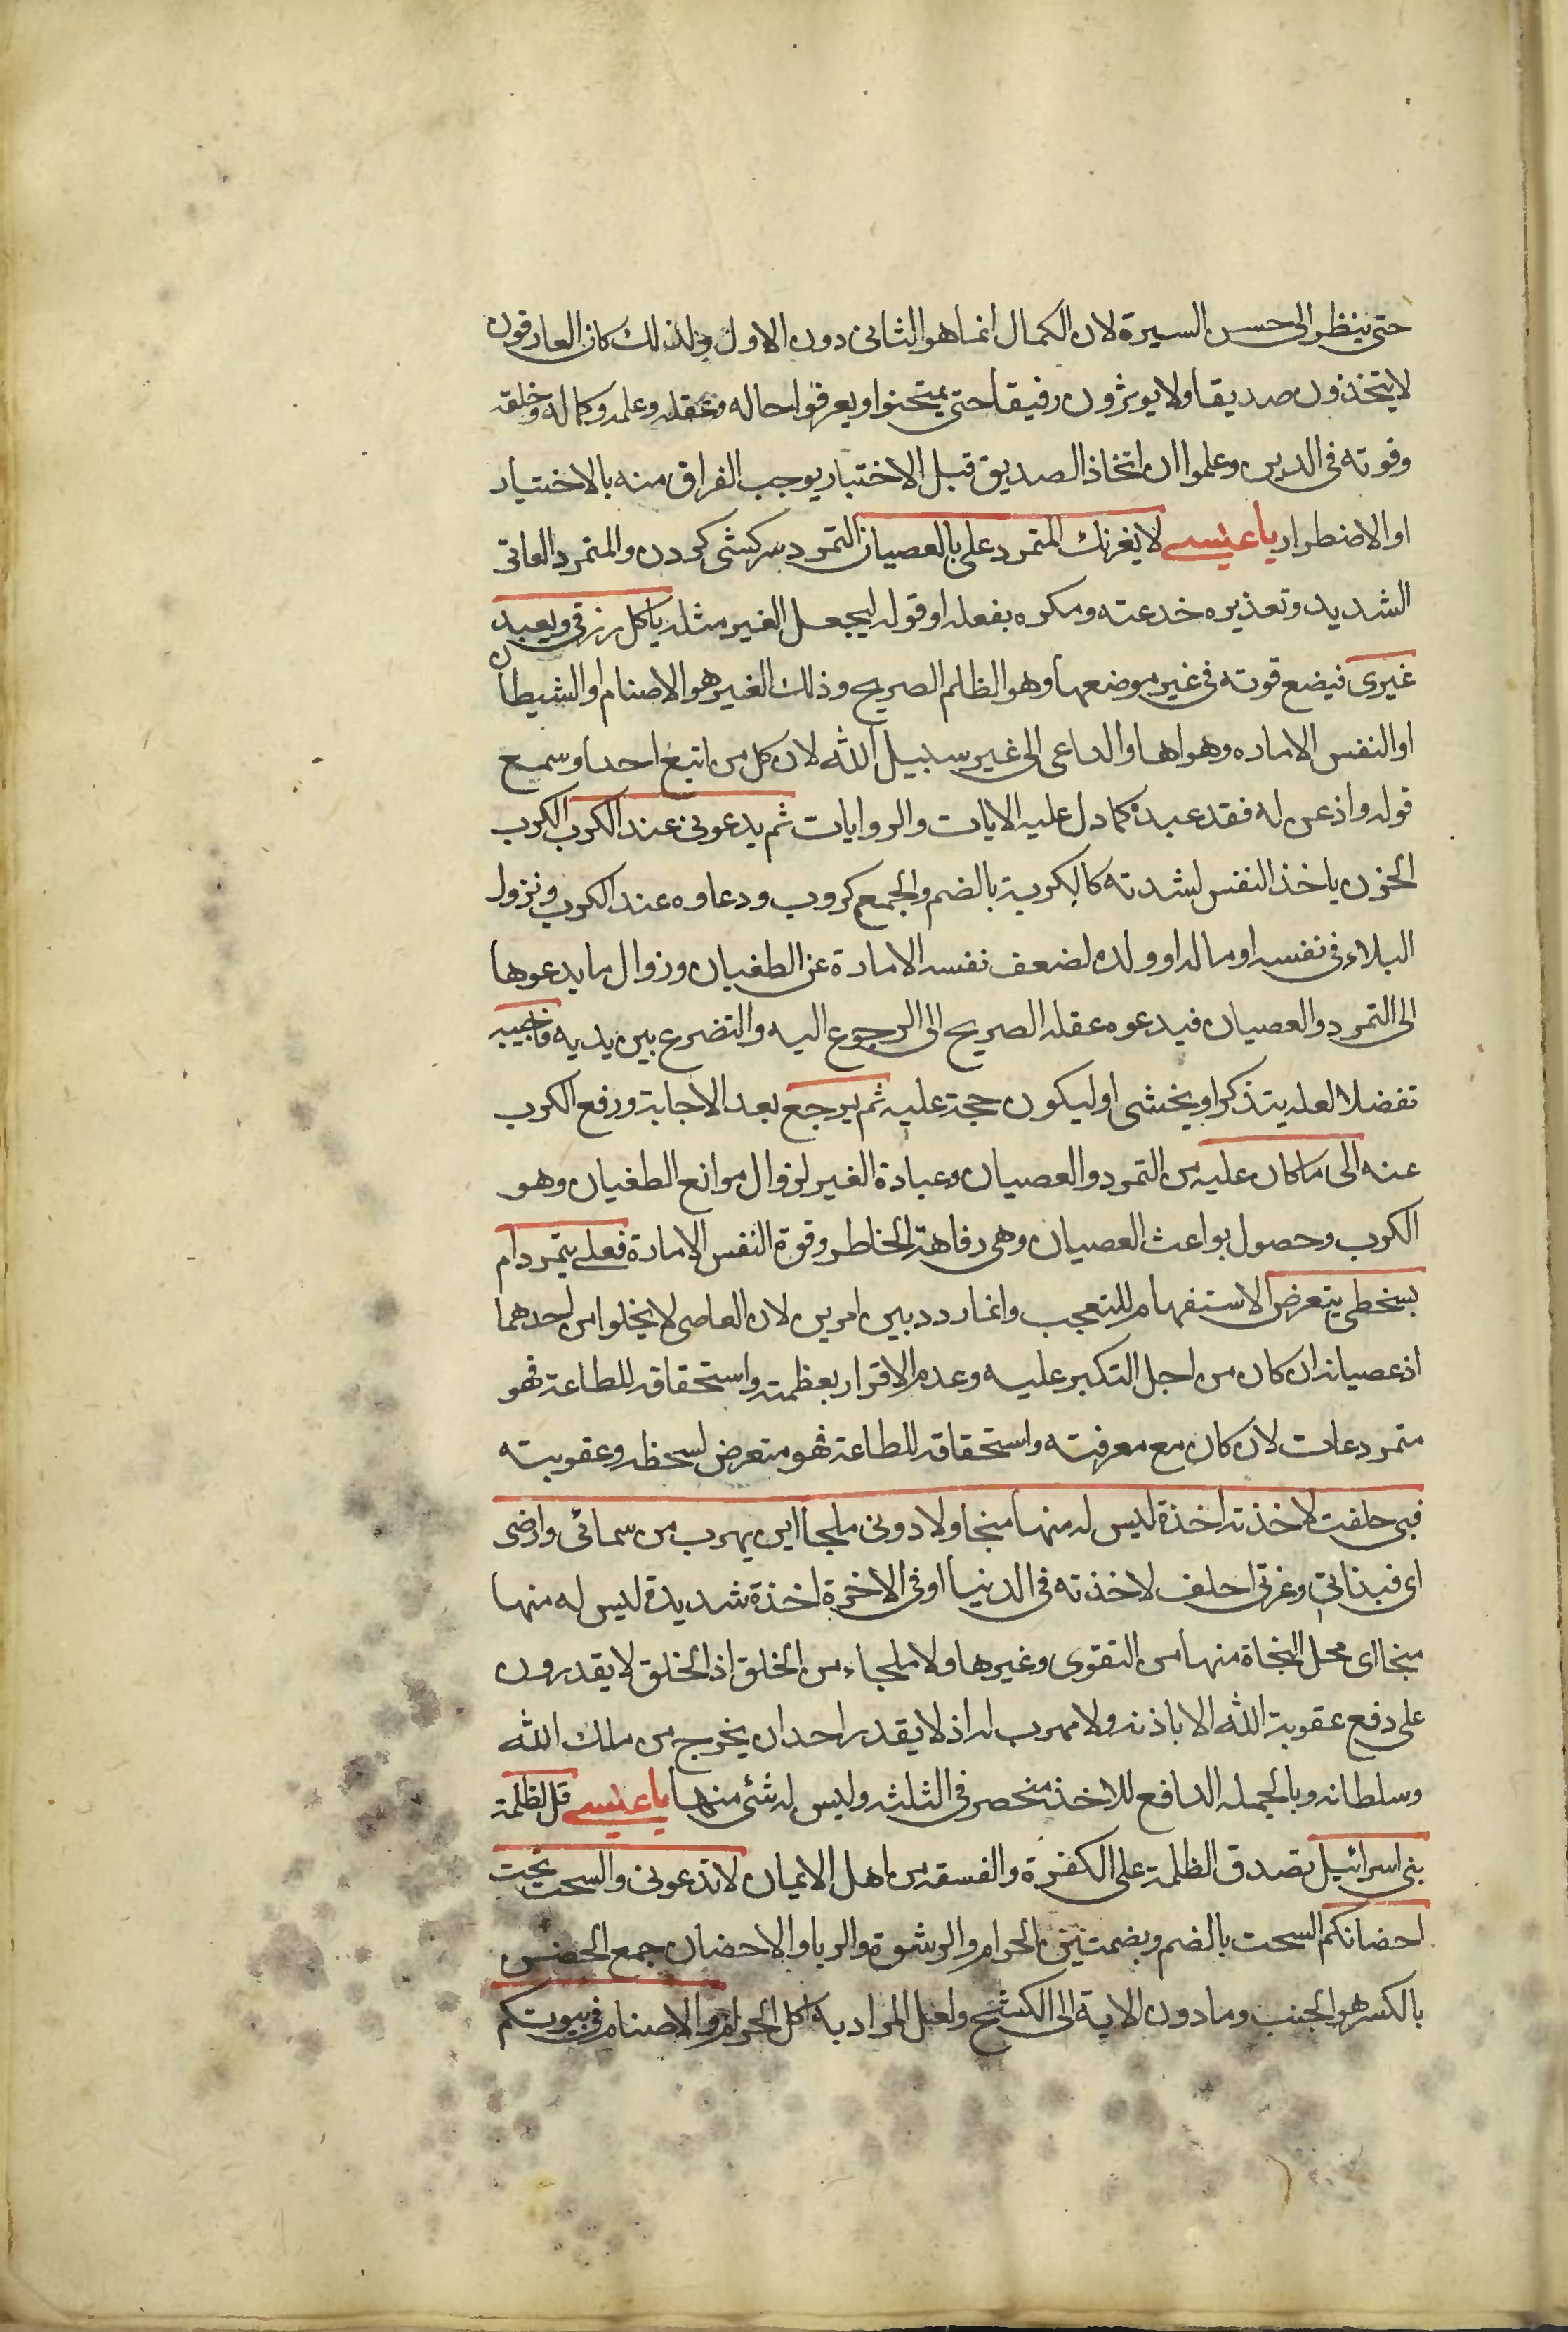 حتى ينظر الى حسن السيرة لان الكمال انما هو الثانى دون الاول ولذلك كان العارفون
لا يتخذون صديقا ولا يوثرون رفيقا حتى يمتحنوا ويعرفوا حاله وعقله وعلمه وكماله وخلقه
وقوته فى الدين وعلموا ان اتخاذ الصديق قبل الاختبار يوجب الفراق منه بالاختيار
او الاضطرار يا عيسى لا يغرنك المتمرد على بالعصيان التمرد سركشى كردن والمتمرد العاتى
الشديد وتعذيره خدعته ومكره بفعله او قوله ليجعل الغير مثله ياكل رزقى ويعبد
غيرى فيضع قوته فى غير موضعها وهو الظلم الصريح وذلك الغير هو الاصنام او الشيطان
او النفس الاماره وهواها والداعى الى غير سبيل الله لان كل من اتبع احدا وسمع
قوله واذعن له فقد عبده كما دل عليه الايات والروايات ثم يدعونى عند الكرب الكرب
الحزن ياخذ النفس لشدته كالكربة بالضم والجمع كروب ودعاوه عند الكرب ونزول
البلاء فى نفسه او ماله او ولده لضعف نفسه الامارة عن الطغيان وزوال ما يدعوها
الى التمرد والعصيان فيدعوه عقله الصريح الى الرجوع اليه والتضرع بين يديه فاجيبه
تفضلا لعله يتذكر او يخشى او ليكون حجة عليه ثم يرجع بعد الاجابة ورفع الكرب
عنه الى ما كان عليه من التمرد والعصيان وعبادة الغير لزوال موانع الطغيان وهو
الكرب وحصول بواعث العصيان وهى رفاهة الخاطر وقوة النفس الامارة فعلى يتمرد ام
بسخطى يتعرض الاستفهام للتعجب وانما ردد بين امرين لان العاصى لا يخلوا من احدهما
اذ عصيانه ان كان من اجل التكبر عليه وعدم الاقرار بعظمته واستحقاقه للطاعة فهو
متمرد عات لان كان مع معرفته واستحقاقه للطاعة فهو متعرض لسخطه وعقوبته
فبى حلفت لاخذنه اخذة ليس له منها منجا ولا دونى ملجا اين يهرب من سمائى وارضى
اى فبذاتى وعزتى احلف لاخذنه فى الدنيا او فى الاخرة اخذة شديدة ليس له منها
منجا اى محل النجاة منها من التقوى وغيرها ولا ملجاء من الخلق اذ الخلق لا يقدرون
على دفع عقوبة الله الا باذنه ولا مهرب له اذ لا يقدر احد ان يخرج من ملك الله
وسلطانه وبالجمله الدافع للاخذ منحصر فى الثلثه وليس له شئ منها يا عيسى قل لظلمة
بنى اسرائيل تصدق الظلمة على الكفرة والفسقه من اهل الايمان لا تدعونى والسحت تحت
احضانكم السحت بالضم وبضمتين الحرام والرشوة والربا والاحضان جمع الحضن
بالكسر هو الجنب وما دون الابة الى الكشح ولعل المراد به اكل الحرام والاصنام فى بيوتكم